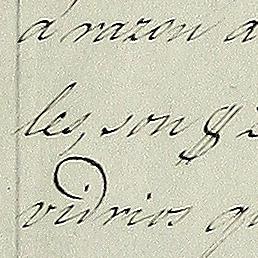 á razon a
les, son $ 2
vidrios qu